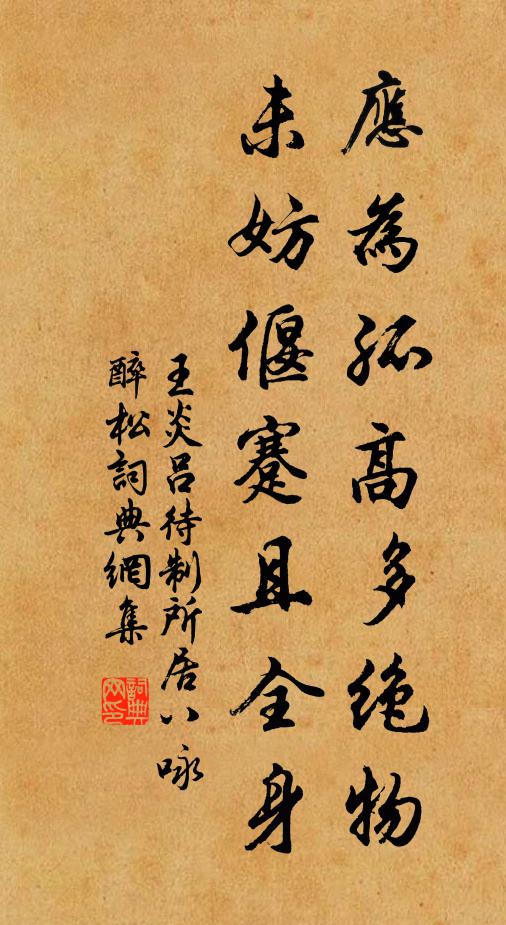 應為孤高多絶物
未妨偃蹇且全身
王炎吕待制所居八咏
醉松詞典網集
詞典網印